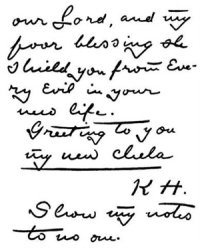 our Lord, and my
poor blessing shall
shield you from Eve-
ry Evil in your
new life.
Greeting to you
my new chela
K H.
Show my notes
to no one.